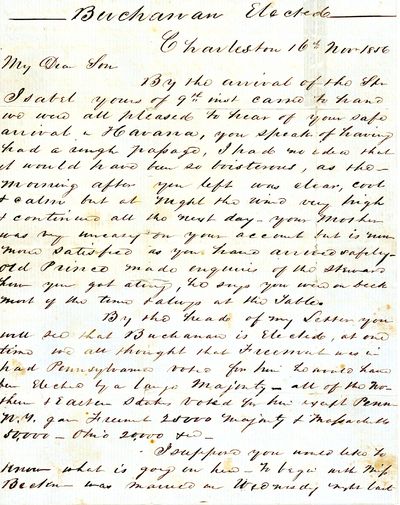 Buchanan Elected
Charleston 16th Novr 1856
My Dear Son
By the arrival of the Str
Isabel yours of 9th inst came to hand
we were all pleased to hear of your safe
arrival in Havana, you speak of having
had a rough passage, I had no idea that
it would have been so boisterous, as the
Morning after you left was clear, cool
& calm but at Night the wind very high
& continued all the next day - your Mother
was very uneasy on your account but is now
more satisfied as you have arrived safely -
old Prince made enquiries of the steward
how you got along, he says you were on deck
most of the time & always at the Tables
By the heads of my Letter you
will see that Buchanan is Elected, at one
time we all thought that Freemont was in
had Pennsylvania voted for him he would have
been Elected by a large Majority - all of the Nor
thern & Eastern States voted for him except Penn
N.Y. gave Fremont 25000 majority & Massachetts
50,000 - Ohio 20,000 &c -
I suppose you would like to
know what is going on here - To begin with Miss
was married on Wednesday night last